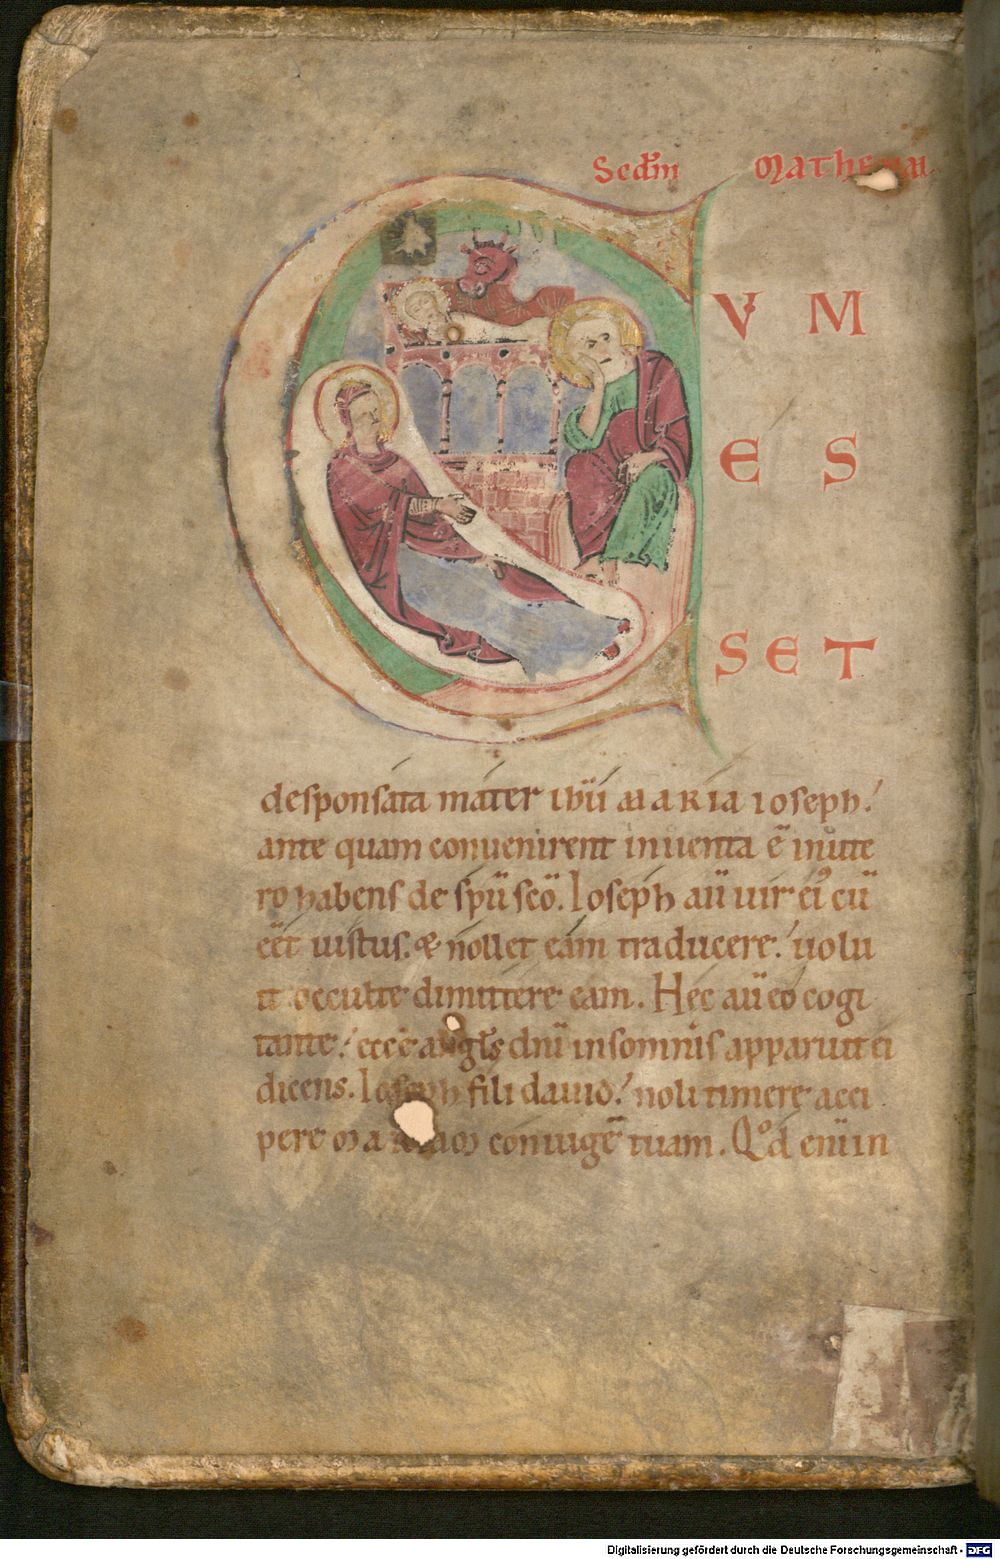 Secd̄m Mathe
C V M
E S
S E T
desponsata mater ihū MARIA ioseph.
ante quam convenirent inventa ē inute
ro habens de spū scō. Ioseph aū vir ei᾽ cū
eēt iustus. & nollet eam traducere. uolu
it occulte dimittere eam. Hec aū eo cogi
tante. ecce angl̄s dn̄i insomnis apparuit ei
dicens. Ioseph fili dauid. noli timere acci
pere MARIAM coniugē tuam. Qd̊ enī in
Digitalisierung gefördert durch die Deutsche Forschungsgemeinschaft - DFG